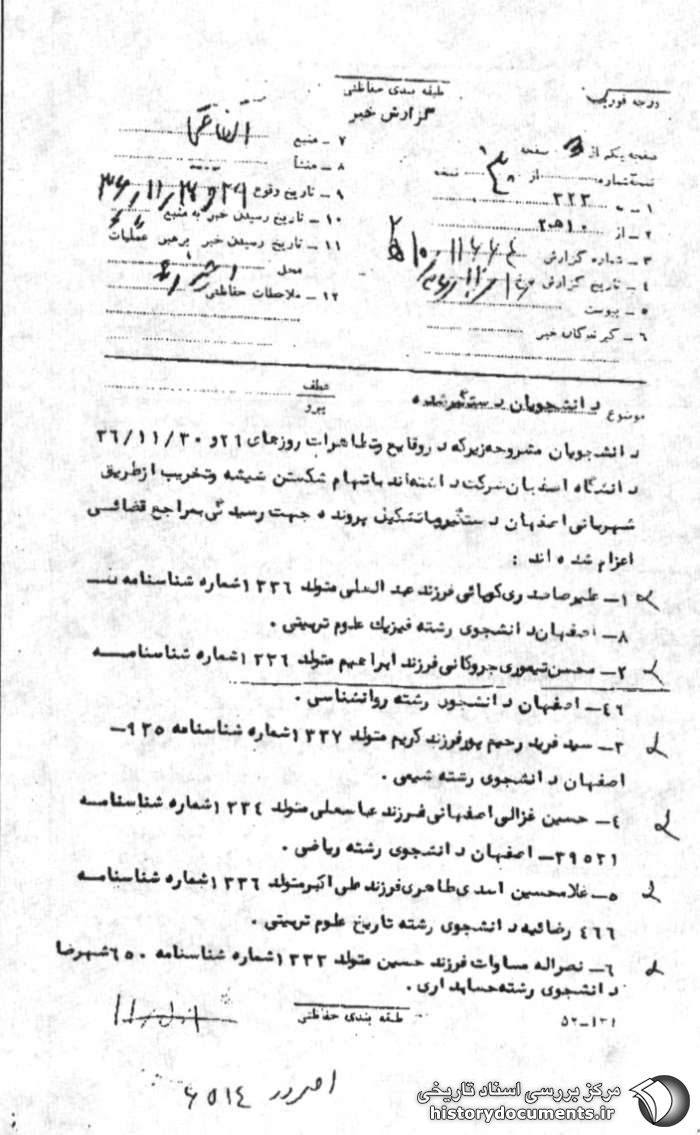 طبقه بندی حفاظتی
گزارش خبر
درجه فوریت
صفحه یکم از 3 صفحه
نسخه شماره از نسخه
۱ – به ۳۲۳
۲ – از ۲۰ه۱۰
۳ – شماره گزارش
۴ – تاریخ گزارش
۵ – پیوست
۶ – گیرندگان خبر
۷ – منبع
۸ – منشأ
۹ – تاریخ وقوع
۱۰ – تاریخ رسیدن خبر به منبع
۱۱ – تاریخ رسیدن خبر برهبر عملیات
محل
۱۲ – ملاحظات حفاظتی
موضوع دانشجویان دستگیرشده
عطف
پیرو
دانشجویان مشروحه زیرکه دروقایع وتظاهرات روزهای ۲۹و ۳۶/۱۱/۳۰
دانشگاه اصفهان شرکت داشته‌اند باتهام شکستن شیشه وتخریب ازطریق
شهربانی اصفهان دستگیروباتشکیل پرونده جهت رسیدگی بمراجع قضائی
اعزام شده اند :
۱– علیرضاصدری کوپائی فرزند عبدالعلی متولد ۱۳۳۶ شماره شناسنامه
۸– اصفهان دانشجوی رشته فیزیک علوم تربیتی .
۲– محسن تیموری جروکانی فرزند ابراهیم متولد ۱۳۳۶ شماره شناسنامه
۴۶– اصفهان دانشجوی رشته روانشناسی .
۳– سید فرید رحیم پورفرزند کریم متولد ۱۳۳۷ شماره شناسنامه ۹۳۵–
اصفهان دانشجوی رشته شیمی .
۴– حسین غزالی اصفهانی فرزند عباسعلی متولد ۱۳۳۴ شماره شناسنامه
۳۹۵۳۱– اصفهان دانشجوی رشته ریاضی .
۵– غلامحسین اسدی طاهری فرزند علی اکبرمتولد ۱۳۳۶ شماره شناسنامه
۴۶۶ رضائیه دانشجوی رشته تاریخ علوم تربیتی .
۶– نصراله مساوات فرزند حسین متولد ۱۳۳۳ شماره شناسنامه ۶۵۰ شهرضا
دانشجوی رشته حسابداری .
طبقه بندی حفاظتی
۵۲–۱۳۱
۶۵۱۴
مرکز بررسی اسناد تاریخی
historydocuments.ir